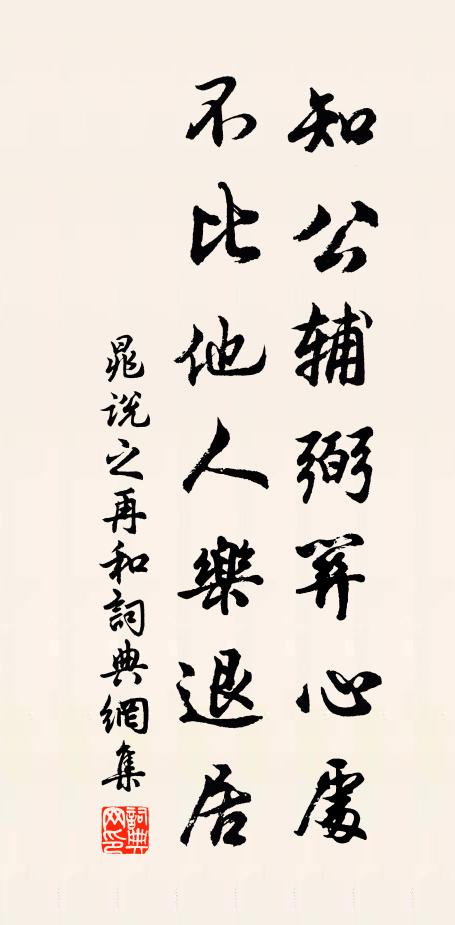 知公辅弼关心处
不比他人樂退居
晁说之再和詞典網集
詞典網印